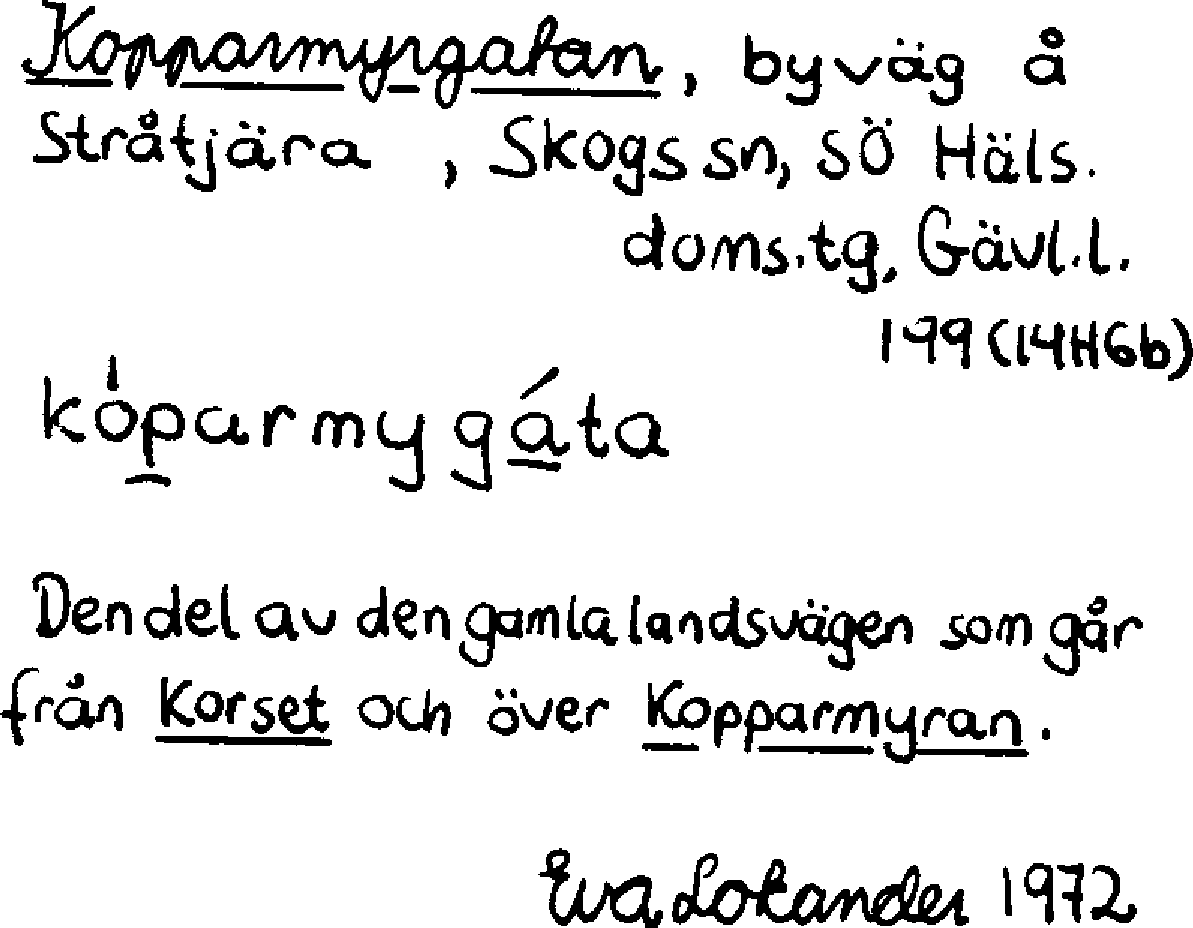 Kopparmyrgatan, byväg å
Stråtjära, Skogs sn, SÖ Häls.
doms.tg, Gävl.l.
199 (14H6b)
kóparmygáta
Den del av den gamla landsvägen som går
från Korset och över Kopparmyran.
Eva Lokander 1972